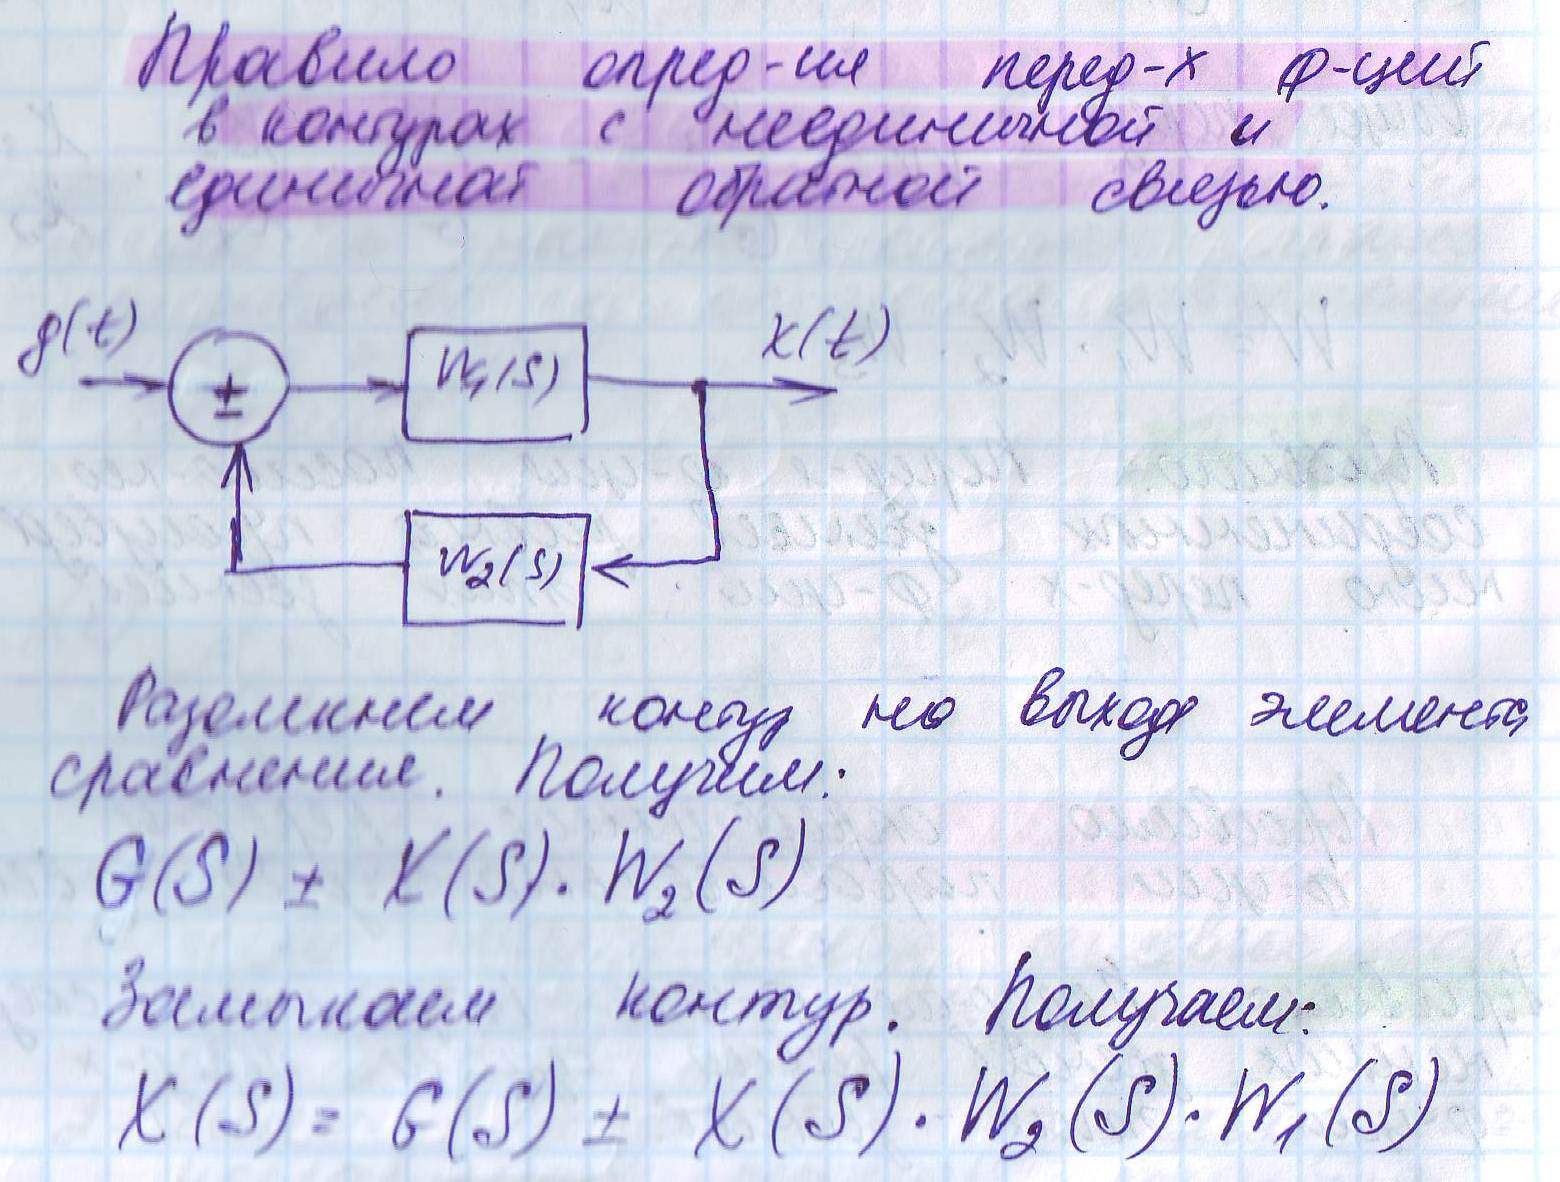 Правило опред-ия перед-х ф-ций
в контурах с неединичной и
единичной обратной связью.
g(t)
±
W1(S)
X(t)
W2(S)
Разомкнем контур на выходе элемента
сравнения. Получим:
G(S) ± X(S)·W2(S)
Замыкаем контур. Получаем:
X(S)= G(S) ± X(S)·W2(S)·W1(S)